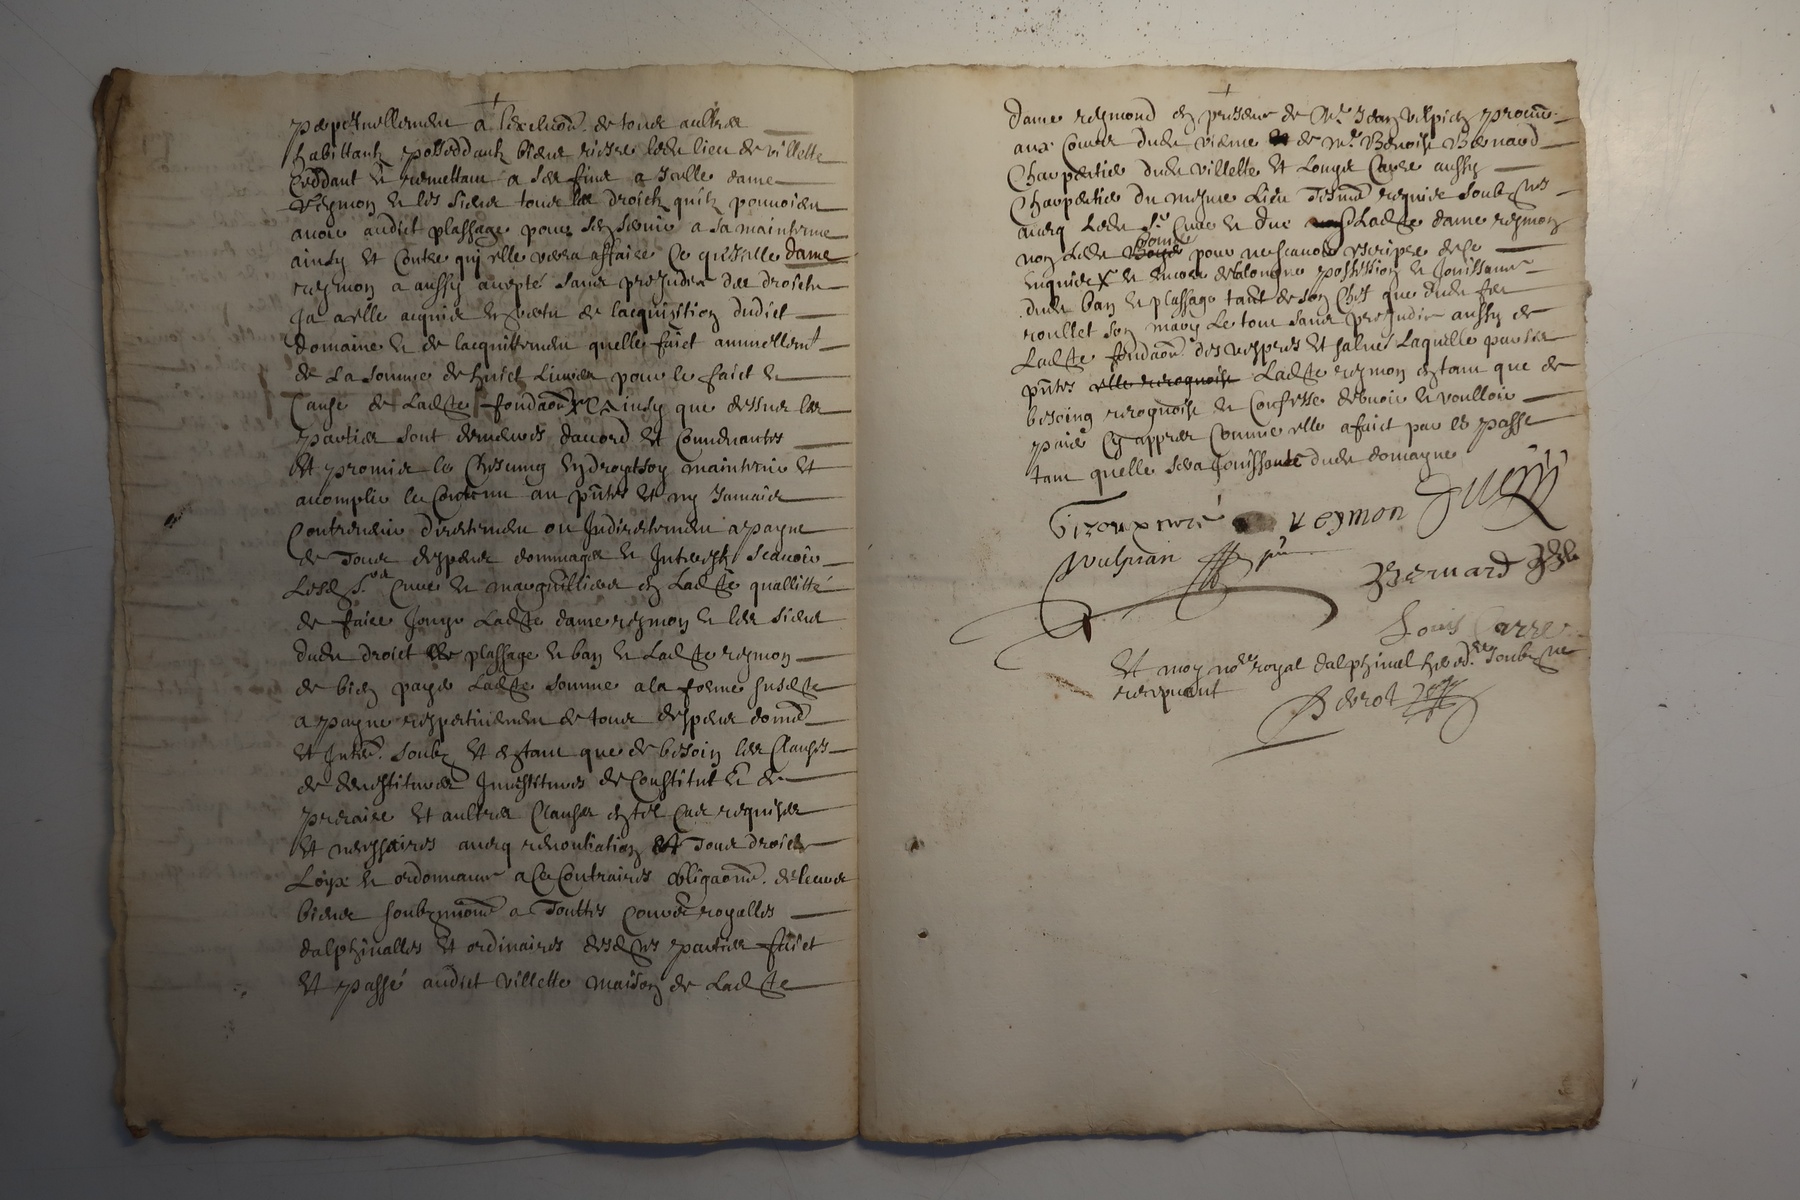 perpetuellement a lexclu͠on. de tous aultres
habittantz posseddantz biens riere ledit lieu de villette
Ceddant et remettant a ses fins a Icelle dame
Reymon et les siens tous les droictz quilz pouvoient
avoir audict plassage pour sen servir a sa maintenue
ainsy et Contre qui elle verra affaire Ce quicelle dame
reymon a aussy acepté sans prejudice des droictz
Ja a elle acquis en vertu de lacquisition dudict
domaine et de lacquittement quelle faict annuellemt
de la somme de huict Livres pour le faict et
Cause de Ladte fonda͠on Ainsy que dessus les
parties sont demeurés daccord et Convenantes
Et promis le Chescung endroictsoy maintenir et
acomplir le Contenu au pñtes et ny Jamais
Contrevenir directement ou Indirectement a payne
de Tous despens dommages et Interestz scavoir
Lesd. srs Curé et marguilliers en Ladte quallitté
de faire Jouyr Ladte dame reymon et les siens
dudit droict de plassage et ban et Ladte reymon
de bien payer Ladte somme a la forme susdte
a payne respectivement de tous despens dom͠e
et Int͠er. soubz et entant que de besoin les Clauses
de devestitures Investitures de Constitut et de
preraire et aultres Clauses en tel Cas requises
et necessaires avecq renontiation et Tous droictz
Loix et ordonnances a Ce Contraires obliga͠on. de leurs
biens soubzmi͠on a Touttes Cours royalles
dalphinalles et ordinaires desdtes parties faict
et passé audict villette maison de Ladte
dame reymond en presence de Me Jean Vulpien procur͠.
aux Cours dudit vienne et de Me Benoist Bernard
Charpentier dudit villette et Louys Carre aussy
Charpentier du mesme Lieu Tesm͠o requis soubznés
avecq ledit sr Curé et due Ladte dame reymon
non ledit Bouvie pour ne scavoir escripre de ce
enquis X et encore de la longue possession et Jouissance
dudit ban et plassage tant de son Chef que dudit feu
roullet son mary Le tout sans prejudice aussy de
Ladte fonda͠on. des vespres et salués Laquelle par les
pñtes elle recognoist Ladte reymon entant que de
besoing recognoist et Confesse debvoir et voulloir
paier Cy appres Comme elle a faict par le passé
tant quelle sera Jouissante dudit domayne
Girouxcuré reymon
Vulpian pñt
Bernard
Louis Carre
Et moy nore royal dalphinal hered.re soubzné
recepvant Berot